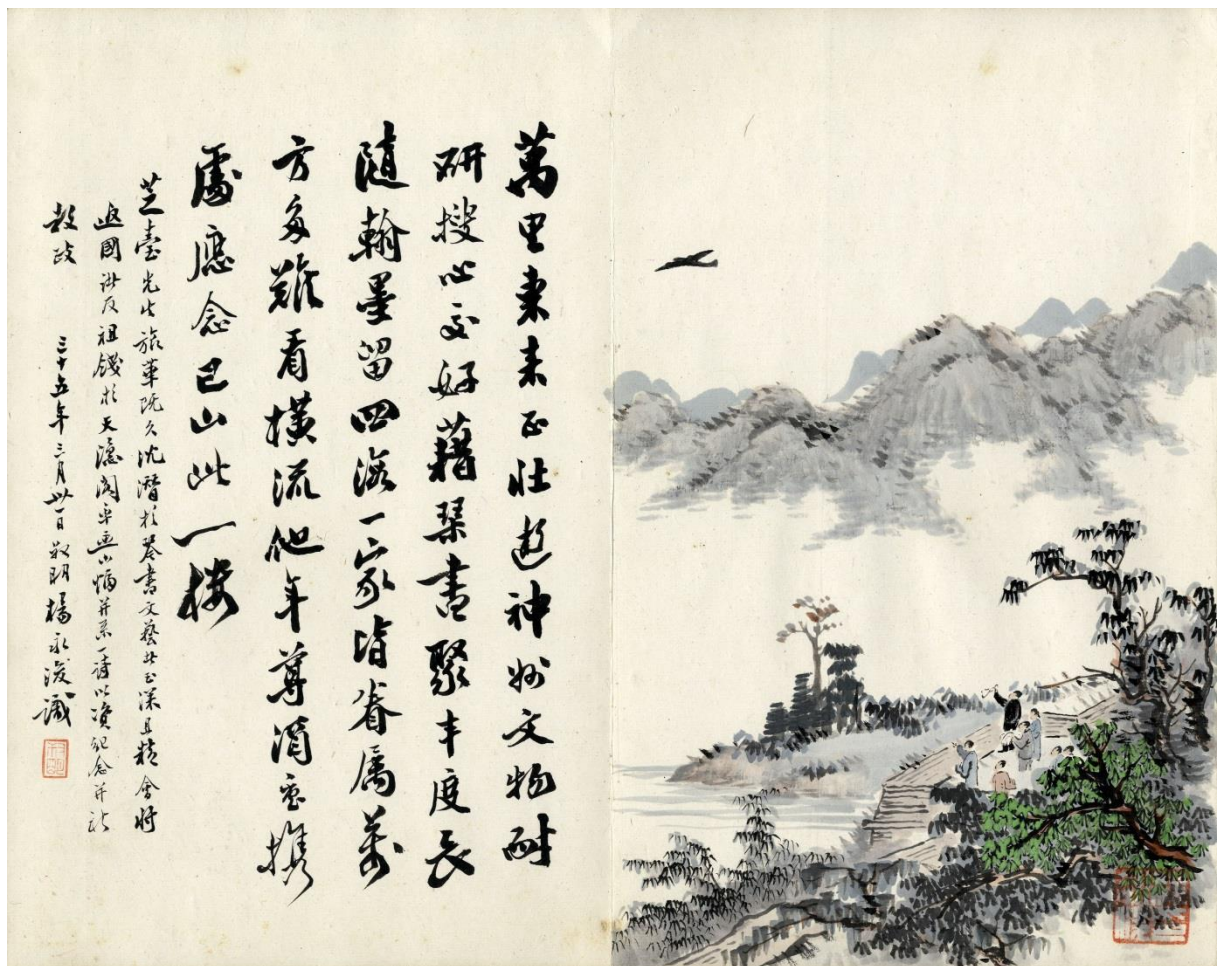 萬里東來正壯遊神州文物耐
研搜心交好藉琴書聚丰度長
隨翰墨留四海一家皆眷屬萬
方多難看橫流他年尊酒重攜
處應念巴山此一樓
芝臺先生旅華既久沈潛於琴書文藝者至深且精會將
返國諸友祖餞於天閣率畫小幅并系一詩以資紀念并祈
教政 三十五年三月卅一日敬明楊永浚識